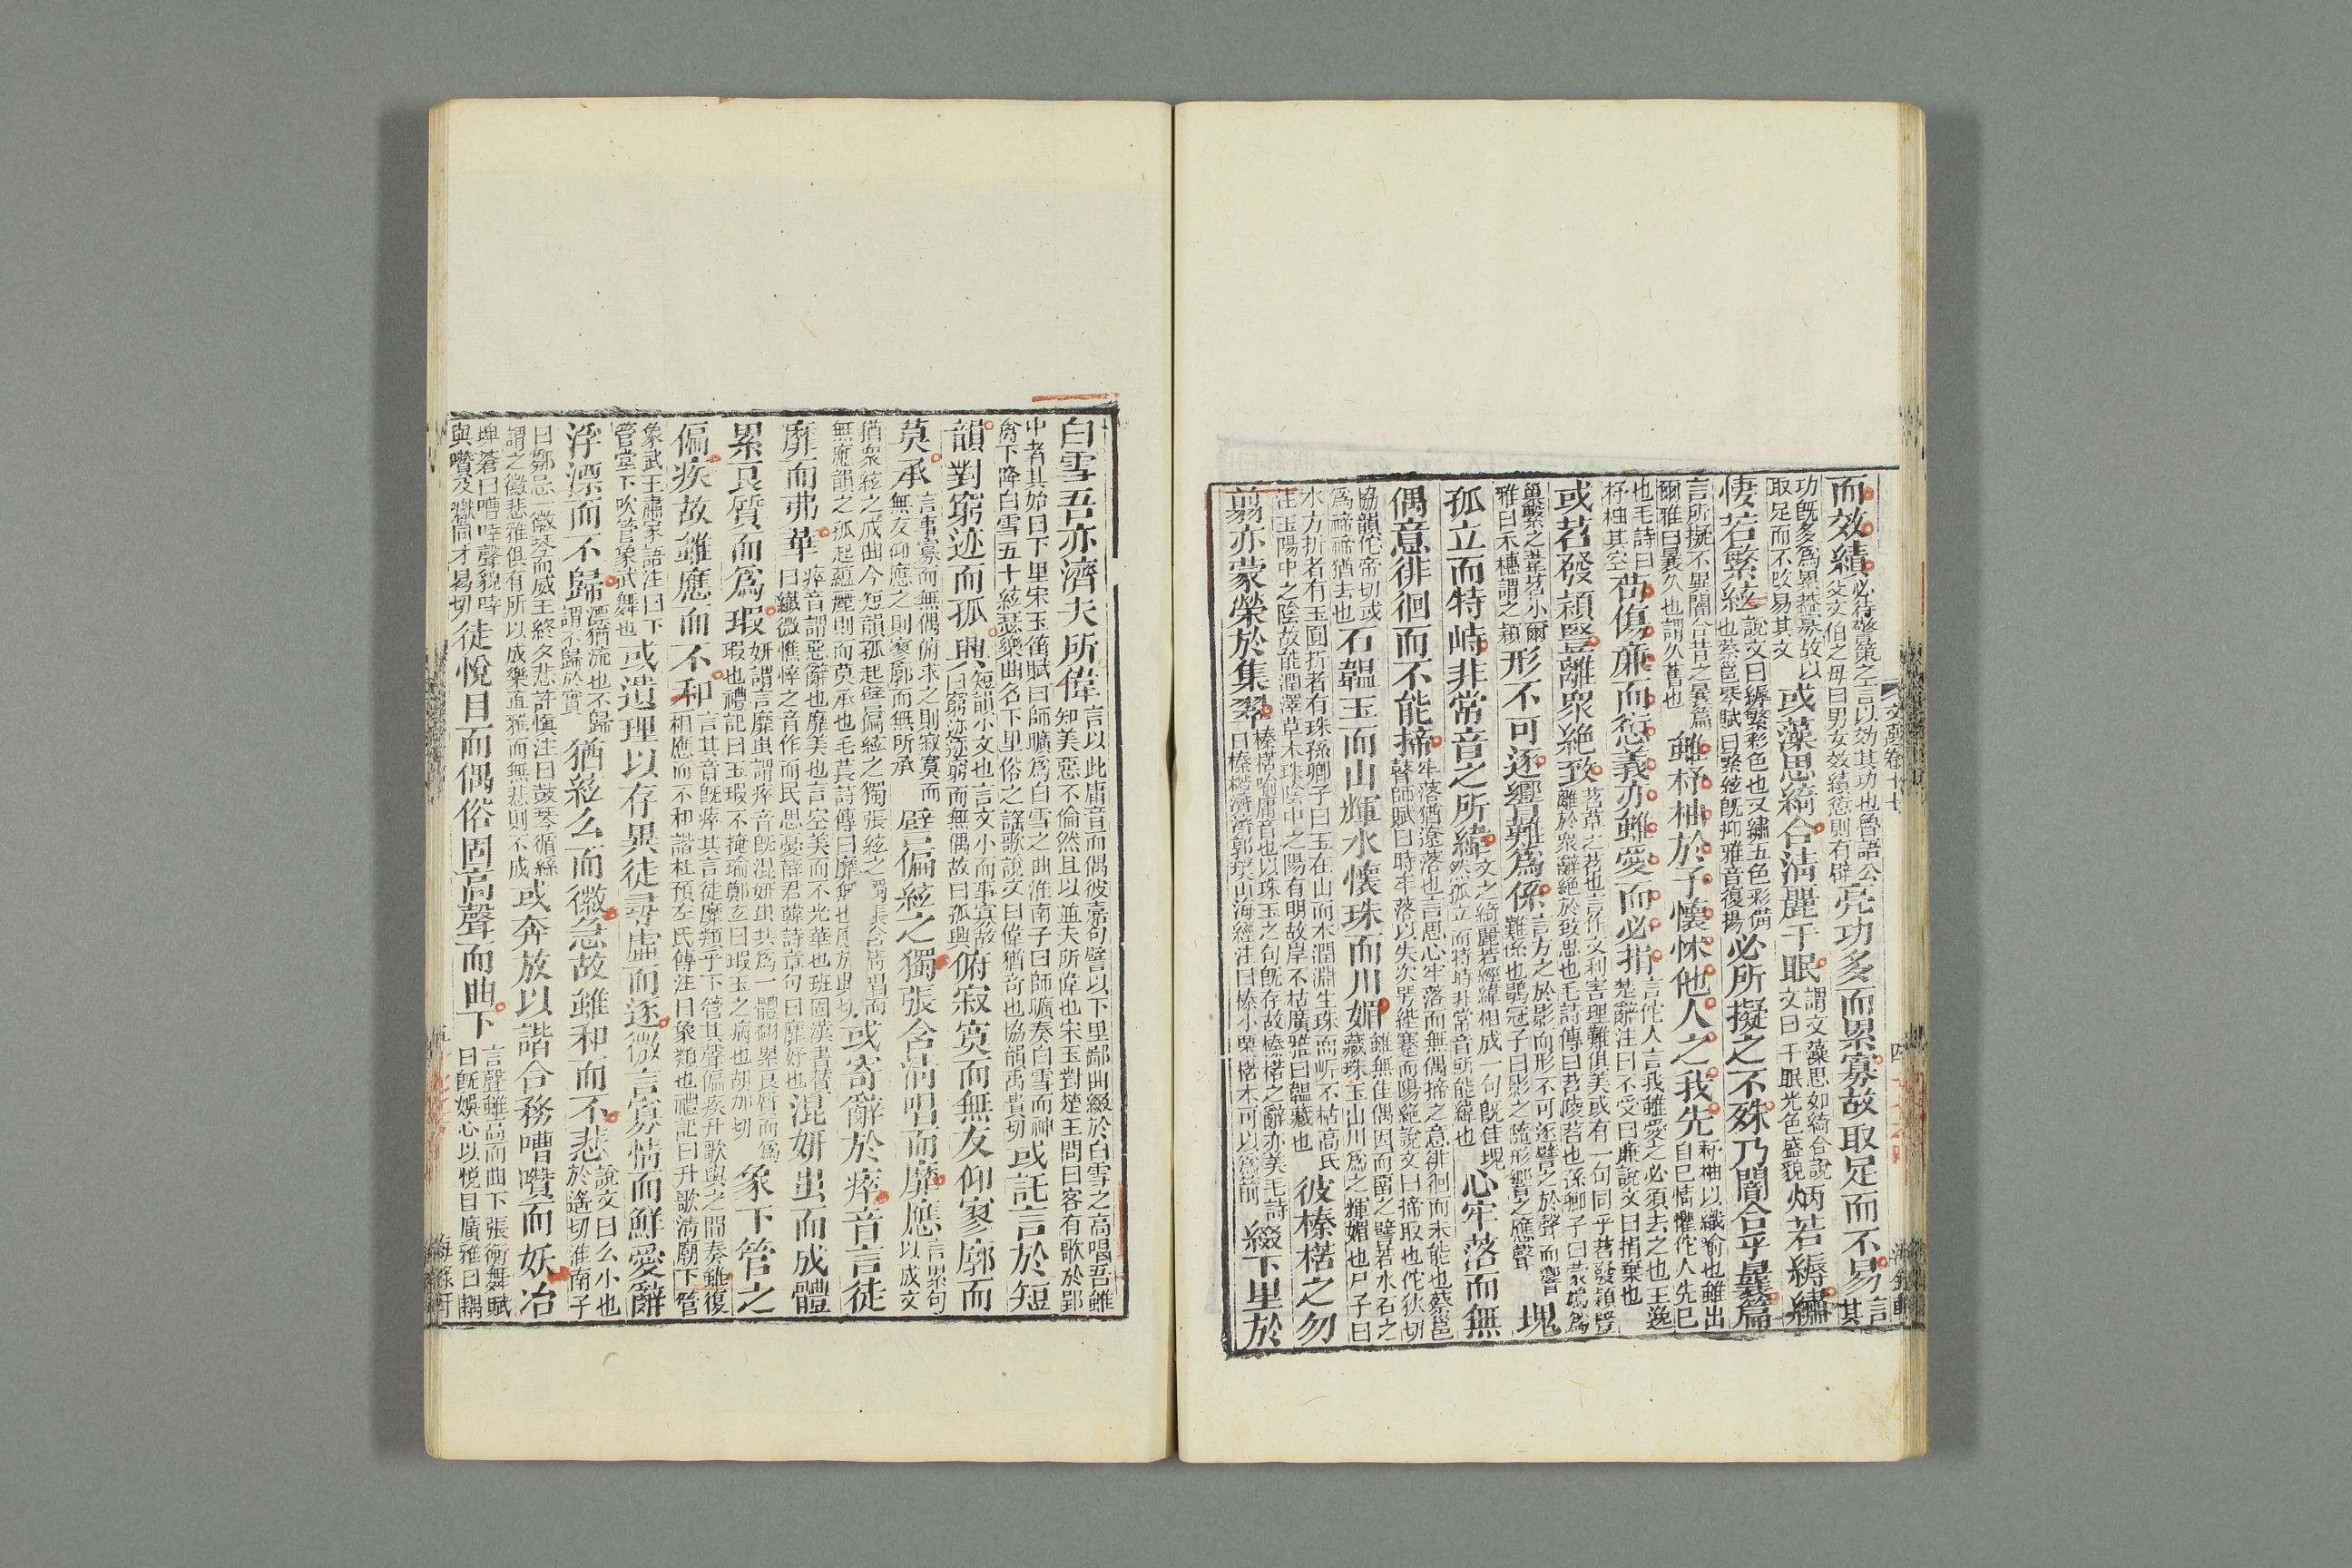 文選卷十七
四
海錄軒
而效績必待警策之言以効其功也魯語公
父文伯之母曰男女效績愆則有辟亮功多而累寡故取足而不易言
其
功既多爲累蓋寡故以
取足而不改易其文或藻思綺合清麗千眠謂文藻思如綺合說
文曰千眠光色盛貌炳若縟繡
悽若繁絃說文曰縟繁彩色也又繡五色彩備
也蔡邕琴賦曰繁絃既抑雅音復揚必所擬之不殊乃闇合乎曩篇
言所擬不異闇合昔之曩篇
爾雅曰曩久也謂久舊也雖杼柚於予懷怵他人之我先杼柚以織喻也雖出
自己情懼佗人先己
也毛詩曰
杼柚其空苟傷廉而愆義亦雖愛而必捐言佗人言我雖愛之必須去之也王逸
楚辭注曰不受曰廉說文曰捐棄也
或苕發穎豎離眾絕致苕草之苕也言作文利害理難俱美或有一句同乎苕發穎豎
離於眾辭絕於致思也毛詩傳曰苕陵苕也孫卿子曰蒙鳩爲
巢繫之葦苕小爾
雅曰禾穗謂之穎形不可逐響難爲係言方之於影而形不可逐譬之於聲而響
難係也鶡冠子曰影之隨形響之應聲塊
孤立而特峙非常音之所緯文之綺麗若經緯相成一句既佳塊
然孤立而特峙非常音所能緯也心牢落而無
偶意徘徊而不能揥牢落猶遼落也言思心牢落而無偶揥之意徘徊而未能也蔡邕
瞽師賦曰時牢落以失次咢蹇而陽絕說文曰揥取也佗狄切
協韻佗帝切或
爲禘禘猶去也石韞玉而山輝水懷珠而川媚雖無佳偶因而留之譬若水石之
藏珠玉山川爲之輝媚也尸子曰
水方折者有玉圓折者有珠孫卿子曰玉在山而木潤淵生珠而岸不枯高氏
注玉陽中之陰故能潤澤草木珠陰中之陽有明故岸不枯廣雅曰韞藏也彼榛楛之勿
翦亦蒙榮於集翠榛楛喻庸音也以珠玉之句既存故榛楛之辭亦美毛詩
曰榛楛濟濟郭璞山海經注曰榛小栗楛木可以爲箭綴下里於
白雪吾亦濟夫所偉言以此庸音而偶彼嘉句譬以下里鄙曲綴於白雪之高唱吾雖
知美惡不倫然且以並夫所偉也宋玉對楚王問曰客有歌於郢
中者其始曰下里宋玉笛賦曰師曠爲白雪之曲淮南子曰師曠奏白雪而神
禽下降白雪五十絃瑟樂曲名下里俗之謠歌說文曰偉猶奇也協韻禹貴切或託言於短
韻對窮迹而孤興短韻小文也言文小而事寡故
曰窮迹迹窮而無偶故曰孤興俯寂寞而無友仰寥廓而
莫承言事寡而無偶俯求之則寂寞而
無友仰應之則寥廓而無所承譬偏絃之獨張含清唱而靡應言累句
以成文
猶眾絃之成曲今短韻孤起譬偏絃之獨張絃之獨張含清唱而
無應韻之孤起蘊麗則而莫承也毛萇詩傳曰靡無也或寄辭於瘁音言徒
靡而弗華瘁音謂惡辭也靡美也言空美而不光華也班固漢書贊
曰纖微憔悴之音作而民思憂薛君韓詩章句曰靡好也混妍蚩而成體
累良質而爲瑕妍謂言靡蚩謂瘁音既混妍蚩共爲一體翻累良質而爲
瑕也禮記曰玉瑕不掩瑜鄭玄曰瑕玉之病也胡加切象下管之
偏疾故雖應而不和言其音既瘁其言徒靡類乎下管其聲偏疾升歌與之間奏雖復
相應而不和諧杜預左氏傳注曰象類也禮記曰升歌清廟下管
象武王肅家語注曰下
管堂下吹管象武舞也或遺理以存異徒尋虛而逐微言寡情而鮮愛辭
浮漂而不歸漂猶流也不歸
謂不歸於實猶絃么而徽急故雖和而不悲說文曰么小也
於遙切淮南子
曰鄒忌一徽琴而威王終夕悲許慎注曰鼓琴循絲
謂之徽悲雅俱有所以成樂直雅而無悲則不成或奔放以諧合務嘈囋而妖冶
埤蒼曰嘈啐聲貌啐
與囋及囐同才曷切徒悅目而偶俗固高聲而曲下言聲雖高而曲下張衡舞賦
曰既娛心以悅目廣雅曰耦
海錄軒